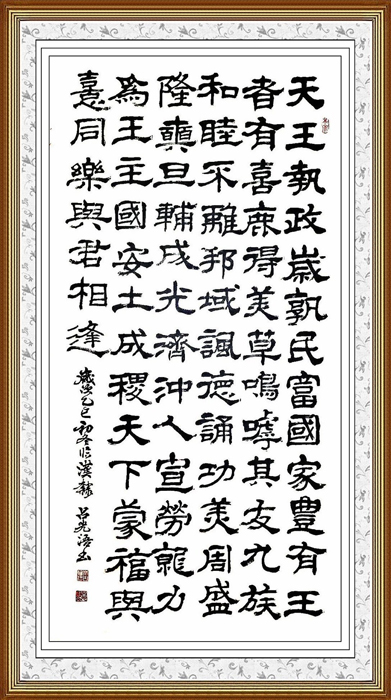 天王執政歲孰民富國家豐有王
者有喜鹿得美草鳴嘑其友九族
和睦不離邦域諷德誦功美周盛
隆奭旦輔成光濟沖人宣勞力
為王主國安土成稷天下蒙福與
憙同樂與君相逢
歲乙巳初冬臨漢隸 呂光書